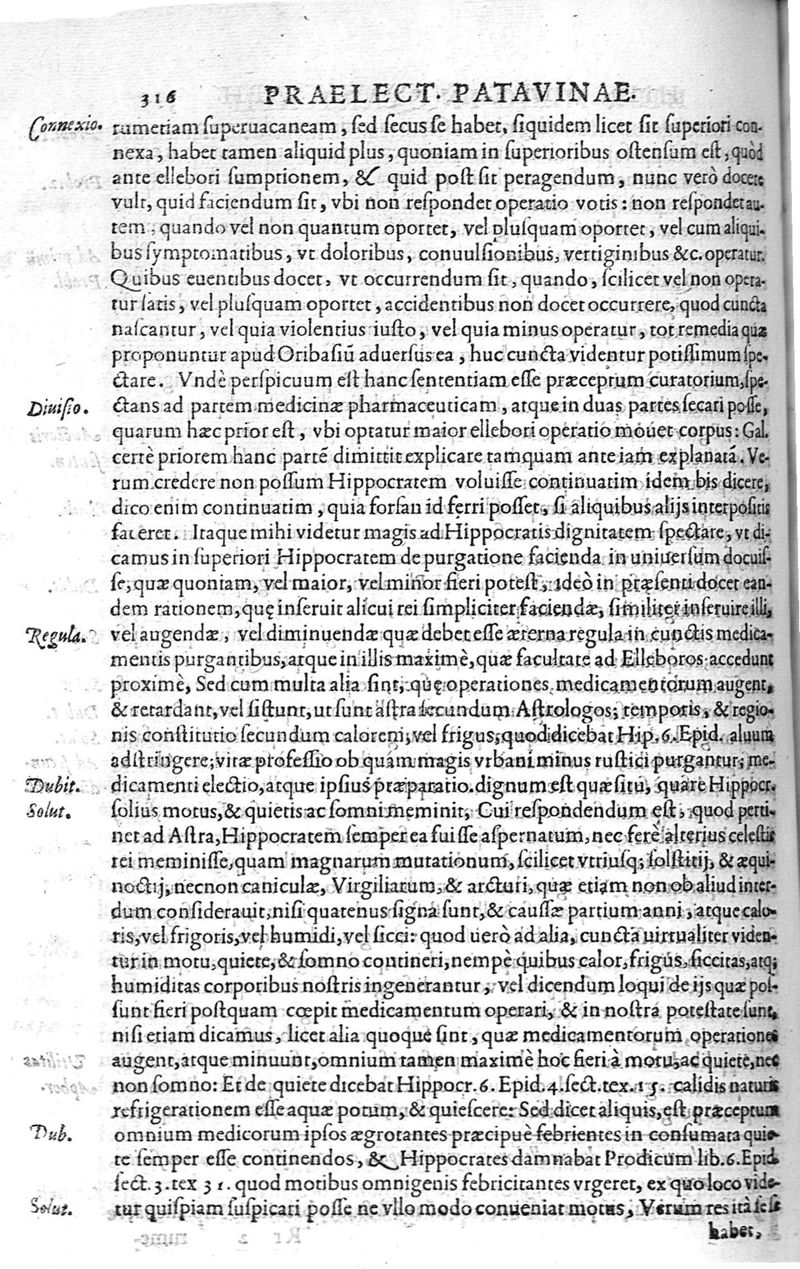 316 PRAELECT. PATAVINAE.
Connexio. tumetiam superuacaneam, sed secus se habet, siquidem licet sit superiori con-
nexa, habet tamen aliquid plus, quoniam in superioribus ostensum est, quòd
ante ellebori sumptionem, & quid post sit peragendum, nunc verò docere
vult, quid faciendum sit, vbi non respondet operatio votis: non respondet au-
tem, quando vel non quantum oportet, vel plusquam oportet, vel cum aliqui-
bus symptomatibus, vt doloribus, conuulsionibus, vertiginibus &c. operatur.
Quibus euentibus docet, vt occurrendum sit, quando, scilicet vel non opera-
tur satis, vel plusquam oportet, accidentibus non docet occurrere, quod cuncta
nascantur, vel quia violentius iusto, vel quia minus operatur, tot remedia quæ
proponuntur apud Oribasiū aduersus ea, huc cuncta videntur potissimum spe-
ctare. Vndè perspicuum est hanc sententiam esse præceptum curatorium, spe-
Diuisio. ctans ad partem medicinæ pharmaceuticam, atque in duas partes secari posse,
quarum hæc prior est, vbi optatur maior ellebori operatio mouet corpus: Gal.
certè priorem hanc partē dimittit explicare tamquam ante iam explanatā. Ve-
rum credere non possum Hippocratem voluisse continuatim idem bis dicere,
dico enim continuatim, quia forsan id ferri posset, si aliquibus alijs interpositis
faceret. Itaque mihi videtur magis ad Hippocratis dignitatem spectare, vt di-
camus in superiori Hippocratem de purgatione facienda in uniuersum docuis-
se, quæ quoniam, vel maior, vel minor fieri potest, ideò in præsenti docet ean-
dem rationem, quę inseruit alicui rei simpliciter faciendæ, similiter inseruire illi,
Regula. vel augendæ, vel diminuendæ quæ debet esse æterna regula in cunctis medica-
mentis purgantibus, atque in illis maximè, quæ facultate ad Elleboros accedunt
proximè, Sed cum multa alia sint, quę operationes medicamentorum augent,
& retardant, vel sistunt, ut sunt astra secundum Astrologos; temporis, & regio-
nis constitutio secundum calorem, vel frigus, quod dicebat Hip. 6. Epid. aluum
adstringere; vitæ professio ob quam magis vrbani minus rustici purgantur; me-
Dubit. dicamenti electio, atque ipsius præparatio. dignum est quæsitu, quare Hippocr.
Solut. solius motus, & quietis ac somni meminit, Cui respondendum est, quod perti-
net ad Astra, Hippocratem semper ea fuisse aspernatum, nec ferè alterius celestis
rei meminisse, quam magnarum mutationum, scilicet vtriusq; solstitij, & æqui-
noctij, necnon caniculæ, Virgiliarum, & arcturi, quæ etiam non ob aliud inter-
dum considerauit, nisi quatenus signa sunt, & caussæ partium anni, atque calo-
ris, vel frigoris, vel humidi, vel sicci: quod uerò ad alia, cuncta uirtualiter viden-
tur in motu, quiete, & somno contineri, nempè quibus calor, frigus, siccitas, atq;
humiditas corporibus nostris ingenerantur, vel dicendum loqui de ijs quæ pos-
sunt fieri postquam cœpit medicamentum operari, & in nostra potestate sunt,
nisi etiam dicamus, licet alia quoque sint, quæ medicamentorum operationes
augent, atque minuunt, omnium tamen maximè hoc fieri à motu, ac quiete, nec
non somno: Et de quiete dicebat Hippocr. 6. Epid. 4. sect. tex. 15. calidis naturis
refrigerationem esse aquæ potum, & quiescere: Sed dicet aliquis, est præceptum
Dub. omnium medicorum ipsos ægrotantes præcipuè febrientes in consumata quie-
te semper esse continendos, & Hippocrates damnabat Prodicum lib. 6. Epid.
sect. 3. tex 31. quod motibus omnigenis febricitantes vrgeret, ex quo loco vide-
Solut. tur quispiam suspicari posse ne vllo modo conueniat motus, Verum res ità se se
habet,